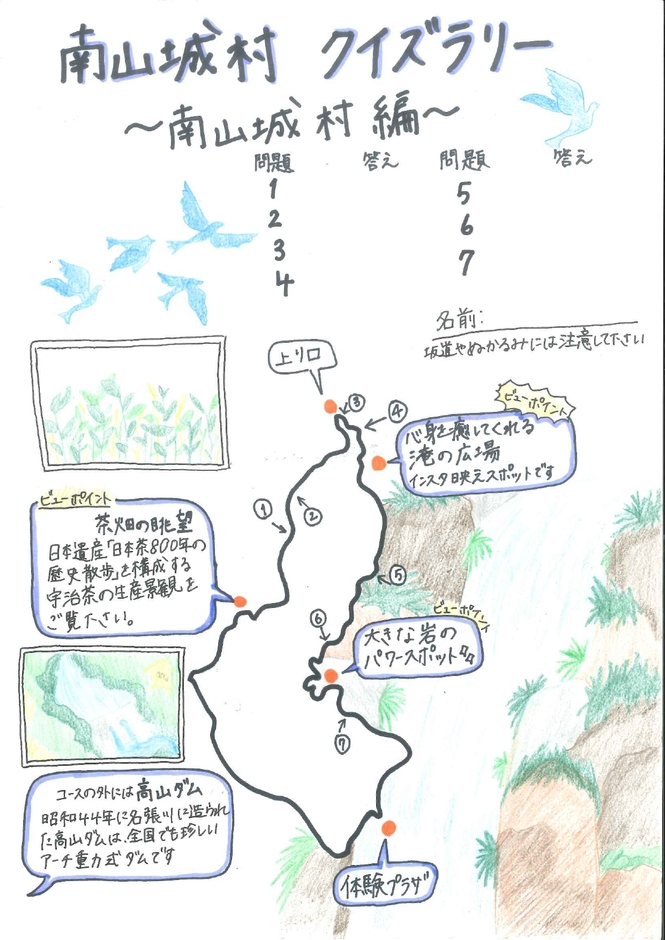 南山城村 クイズラリー
～南山城村編～
問題 答え 問題 答え
1 5
2 6
3 7
4
名前:
坂道やぬかるみには注意して下さい
上り口
③
④
ビューポイント
心身を癒してくれる
滝の広場
インスタ映えスポットです
ビューポイント
茶畑の眺望
日本遺産「日本茶800年の
歴史散歩」を構成する
宇治茶の生産景観を
ご覧下さい。
①
②
⑤
⑥
ビューポイント
大きな岩の
パワースポット
⑦
コースの外には高山ダム
昭和44年に名張川に造られ
た高山ダムは、全国でも珍しい
アーチ重力式ダムです
体験プラザ